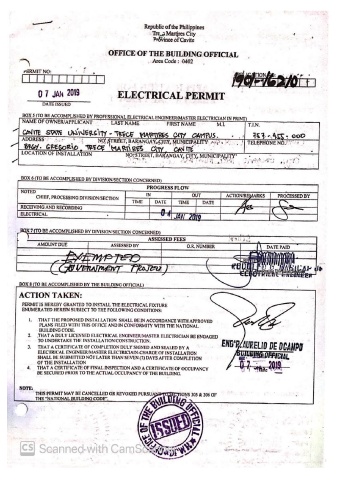 Republic of the Philippines
Trece Martires City
Province of Cavite
OFFICE OF THE BUILDING OFFICIAL
Area Code : 0402
PERMIT NO:
07 JAN 2019
DATE ISSUED
ELECTRICAL PERMIT
BOX 5 (TO BE ACCOMPLISHED BY PROFESSIONAL ELECTRICAL ENGINEER/MASTER ELECTRICIAN IN PRINT)
NAME OF OWNER/APPLICANT LAST NAME FIRST NAME M.I. T.I.N.
CAVITE STATE UNIVERSITY - TRECE MARTIRES CITY CAMPUS.
ADDRESS NO. STREET, BARANGAY, CITY, MUNICIPALITY TELEPHONE NO.
BRGY. GREGORIO TRECE MARTIRES CITY, CAVITE
LOCATION OF INSTALLATION NO. STREET, BARANGAY, CITY, MUNICIPALITY
BOX 6 (TO BE ACCOMPLISHED BY DIVISION/SECTION CONCERNED)
PROGRESS FLOW
NOTED IN OUT ACTION/REMARKS PROCESSED BY
CHIEF, PROCESSING DIVISION/SECTION TIME DATE TIME DATE
RECEIVING AND RECORDING
ELECTRICAL 04 JAN 2019
BOX 7 (TO BE ACCOMPLISHED BY DIVISION/SECTION CONCERNED)
ASSESSED FEES
AMOUNT DUE ASSESSED BY O.R. NUMBER DATE PAID
EXEMPTED
(GOVERNMENT PROJECT)
ELECTRICAL ENGINEER
BOX 8 (TO BE ACCOMPLISHED BY THE BUILDING OFFICIAL)
ACTION TAKEN:
PERMIT IS HEREBY GRANTED TO INSTALL THE ELECTRICAL FIXTURE
ENUMERATED HEREIN SUBJECT TO THE FOLLOWING CONDITIONS:
1. THAT THE PROPOSED INSTALLATION SHALL BE IN ACCORDANCE WITH APPROVED
PLANS FILED WITH THIS OFFICE AND IN CONFORMITY WITH THE NATIONAL
BUILDING CODE.
2. THAT A DULY LICENSED ELECTRICAL ENGINEER/MASTER ELECTRICIAN BE ENGAGED
TO UNDERTAKE THE INSTALLATION/CONSTRUCTION.
3. THAT A CERTIFICATE OF COMPLETION DULY SIGNED AND ENDORSED BY A
ELECTRICAL ENGINEER/MASTER ELECTRICIAN-CHARGE OF INSTALLATION
SHALL BE SUBMITTED NOT LATER THAN SEVEN (7) DAYS AFTER COMPLETION
OF THE INSTALLATION.
4. THAT A CERTIFICATE OF FINAL INSPECTION AND A CERTIFICATE OF OCCUPANCY
BE SECURED PRIOR TO THE ACTUAL OCCUPANCY OF THE BUILDING.
ENGR. AURELIO DE OCAMPO
BUILDING OFFICIAL
07 JAN 2019
NOTE:
THIS PERMIT MAY BE CANCELLED OR REVOKED PURSUANT TO SECTIONS 305 & 306 OF
THE "NATIONAL BUILDING CODE".
OFFICE OF THE BUILDING OFFICIAL
ISSUED
CS Scanned with CamScanner